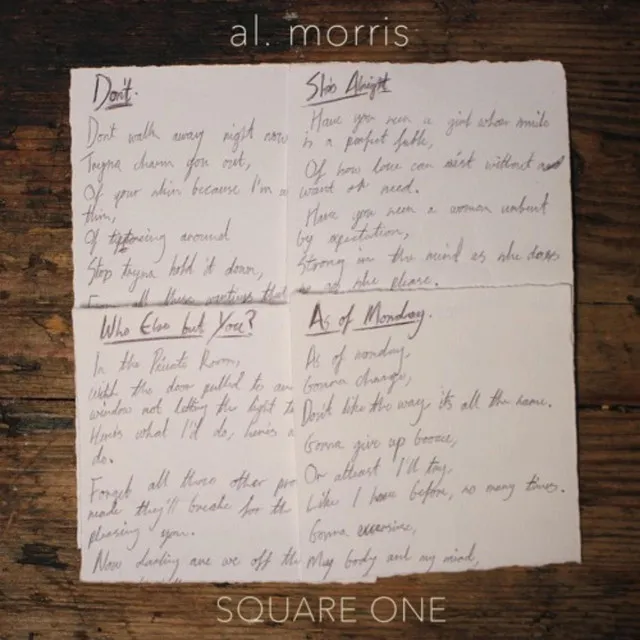 al. morris
Don't.
Dont walk away right now
Tryna charm you out,
Of your skin because I'm
thin,
Of tiptoeing around
Stop tryna hold it down,
all these
She's Alright
Have you seen a girl whose smile
is a perfect fable,
Of how love can exist without
want or need.
Have you seen a woman unbent
by expectation,
Strong in the mind as she does
as she please.
Who Else but You?
In the Private Room,
With the door pulled to
window not letting the light
what I'd do, here's
do.
Forget all those other
made they'll breake for the
pleasing you.
Now darling are we off the
As of Monday.
As of monday,
Gonna change,
Don't like the way its all the same.
Gonna give up booze,
Or atleast I'll try,
Like I have before, so many times.
Gonna excersise,
My body and my mind,
SQUARE ONE